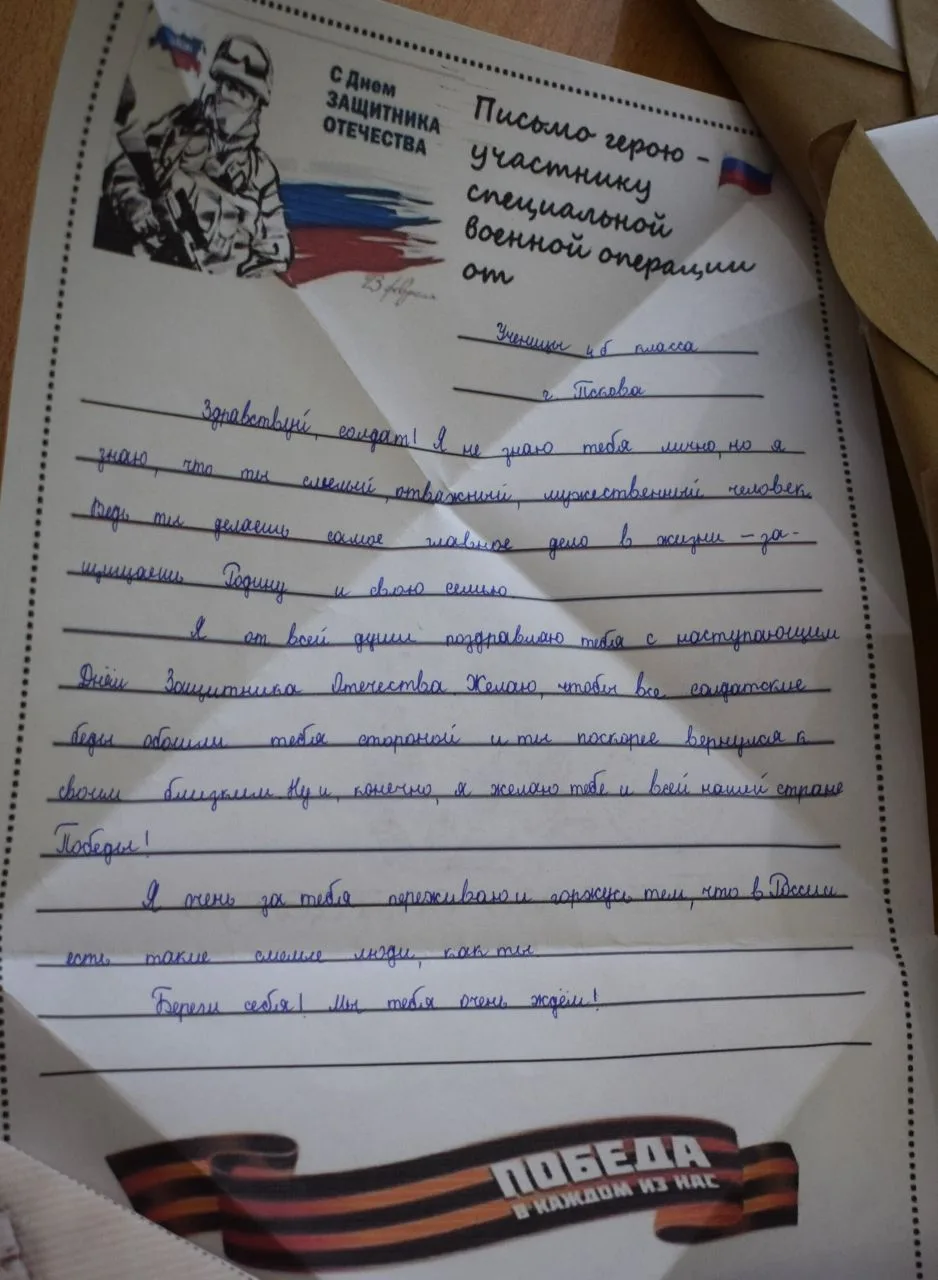 С Днем
ЗАЩИТНИКА
ОТЕЧЕСТВА
23 февраля
Письмо герою -
участнику
специальной
военной операции
от
Ученицы 4б класса
г. Пскова
Здравствуй, солдат! Я не знаю тебя лично, но я
знаю, что ты смелый, отважный, мужественный человек.
Ведь ты делаешь самое главное дело в жизни - за-
щищаешь Родину и свою семью.
Я от всей души поздравляю тебя с наступающим
Днём Защитника Отечества. Желаю, чтобы все солдатские
беды обошли тебя стороной и ты поскорее вернулся к
своим близким. Ну и, конечно, я желаю тебе и всей нашей стране
Победы!
Я очень за тебя переживаю и горжусь тем, что в России
есть такие смелые люди, как ты.
Береги себя! Мы тебя очень ждём!
ПОБЕДА
В КАЖДОМ ИЗ НАС